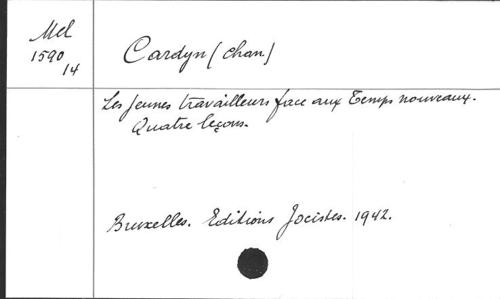 Mel
1590
14
Cardyn (chan)
Les jeunes travailleurs face aux Temps nouveaux.
Quatre leçons.
Bruxelles. Editions Jocistes. 1942.